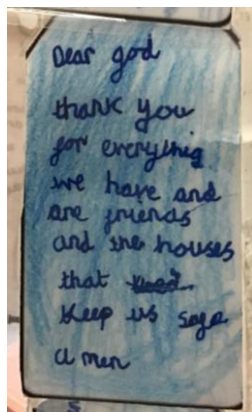 Dear god
thank you
for everything
we have and
are friends
and the houses
that
Keep us safe
A men